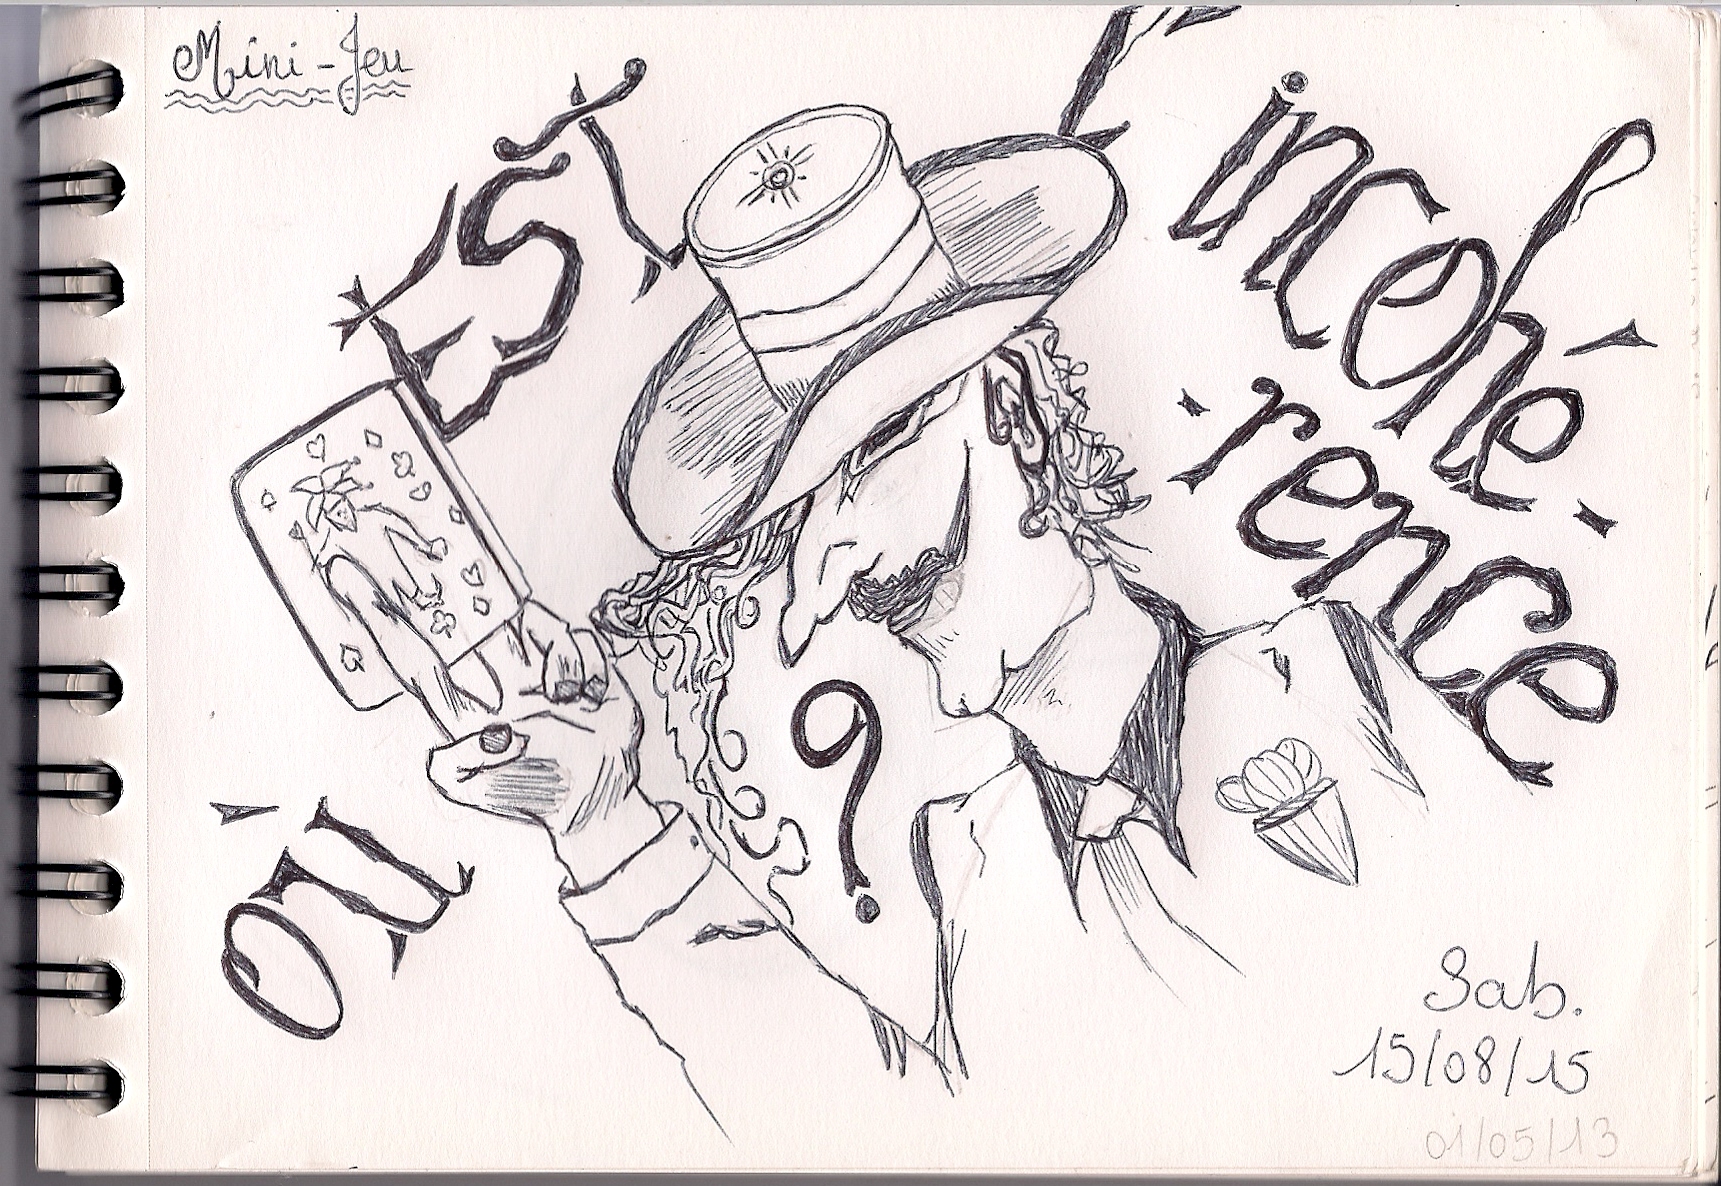 Mini-Jeu
où
EST
l'
incohé-
-rence
?
Sab.
15/08/15
01/05/13